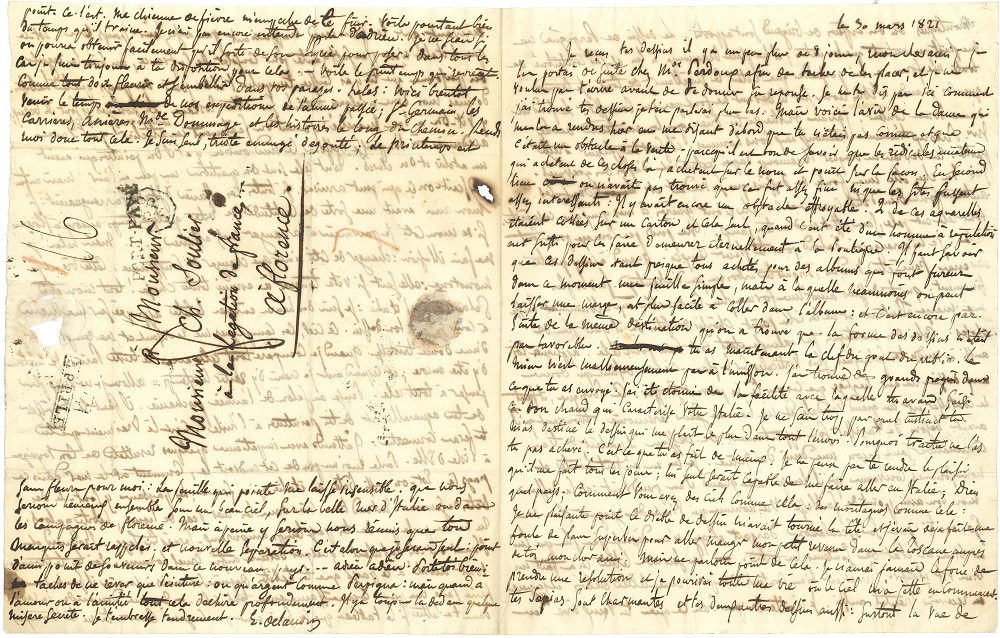 le 30 mars 1821
J'ai reçu tes dessins il y a un peu plus de 8 jours, mon cher ami : je
les portai de suite chez Mde Perdoux afin de tacher de les placer, et je ne
voulus pas t'ecrire avant de te donner sa reponse. Je ne te dis pas ici comment
j'ai trouvé tes dessins je t'en parlerai plus bas. Mais voici l'avis de la dame qui
me les a rendus hier en me disant d'abord que tu n'etais pas connu et que
c'etait un obstacle à la vente - parcequ'il est bon de savoir que les ridicules amateurs
qui achetent de ces choses là, achetent sur le nom et point sur la façon. En second
lieu on n'avait pas trouvé que ce fut assez fini ni que les sites fussent
assez interessants : Il y avait encore un obstacle effroyable : 2 de ces aquarelles
étaient collées sur un carton, et cela seul, quand c'eut été d'un homme à reputation
eut suffi pour les faire demeurer eternellement à la boutique. Il faut savoir
que ces dessins étant presque tous achetés pour des albums qui font fureur
dans ce moment une feuille simple, mais à la quelle neanmoins on peut
laisser une marge, est plus facile à coller dans l'album : et c'est encore par
suite de la meme destination qu'on a trouvé que la forme des dessins n'etait
pas favorable. tu as maintenant la clef du gout du public. Le
mien n'est malheureusement pas à l'unisson. J'ai trouvé de grands progrès dans
ce que tu as envoyé. J'ai été étonné de la facilité avec laquelle tu avais saisi
ce ton chaud qui caracterise votre Italie. Je ne sais trop par quel instinct tu
m'as destiné le dessin qui me plait le plus dans tout l'envoi. Pourquoi ne l'as
tu pas achevé. C'est ce que tu as fait de mieux. Je ne peux pas te rendre le plaisir
qu'il me fait tous les jours : lui seul serait capable de me faire aller en Italie, Dieu
quel pays. Comment vous avez des ciels comme cela : des montagnes comme cela :
Je ne plaisante point le diable de dessin m'avait tourné la tête et j'avais deja fait une
foule de plans superbes pour aller manger mon petit revenu dans la Toscane auprès
de toi mon cher ami. Mais ne parlons point de cela. Je n'aurai jamais la force de
prendre une resolution et je pourrirai toute ma vie où le ciel m'a jetté en commençant
tes sepias sont charmantes et tes deux autres dessins aussi : surtout la vue de
point. Ce l'est. Ma chienne de fievre m'empeche de le finir. Voila pourtant bien
du temps qu'il traine. Je n'ai pas encore entendu parler d'adrien. Je ne sais si
on pourra obtenir facilement qu'il sorte de son lycée pour poser. Dans tous les
cas je suis toujours à ta disposition pour cela. - Voila le printemps qui revient
comme tout doit fleurir et s'embellir dans vos parages. helas : voici bientot
venir le temps de nos expeditions de l'année passée. St Germain les
Carrieres, Anieres, Mde Dommage et les histoires le long du chemin. Rends
moi donc tout cela. Je suis seul, triste ennuyé degouté. Le printemps est
PORT PAYÉ
Monsieur
Monsieur Ch. Soulier
à la legation de france
à florence.
sans fleurs pour moi : la feuille qui pointe me laisse insensible. que nous
serions heureux ensemble sous un beau ciel, sur la belle mer d'Italie ou dans
les campagnes de florence. Mais à peine y serions nous reunis que ton
marquis serait rappelé. et nouvelle separation. C'est alors que je serais seul : pour
dans point de faveurs dans ce nouveau pays. -- adieu adieu
taches de ne rever que peinture : ou qu'argent comme harpagon : mais quand a
l'amour ou à l'amitié tout cela dechire profondement. Il y a toujours là dedans quelque
misere secrète. Je t'embrasse tendrement. E. Delacroix